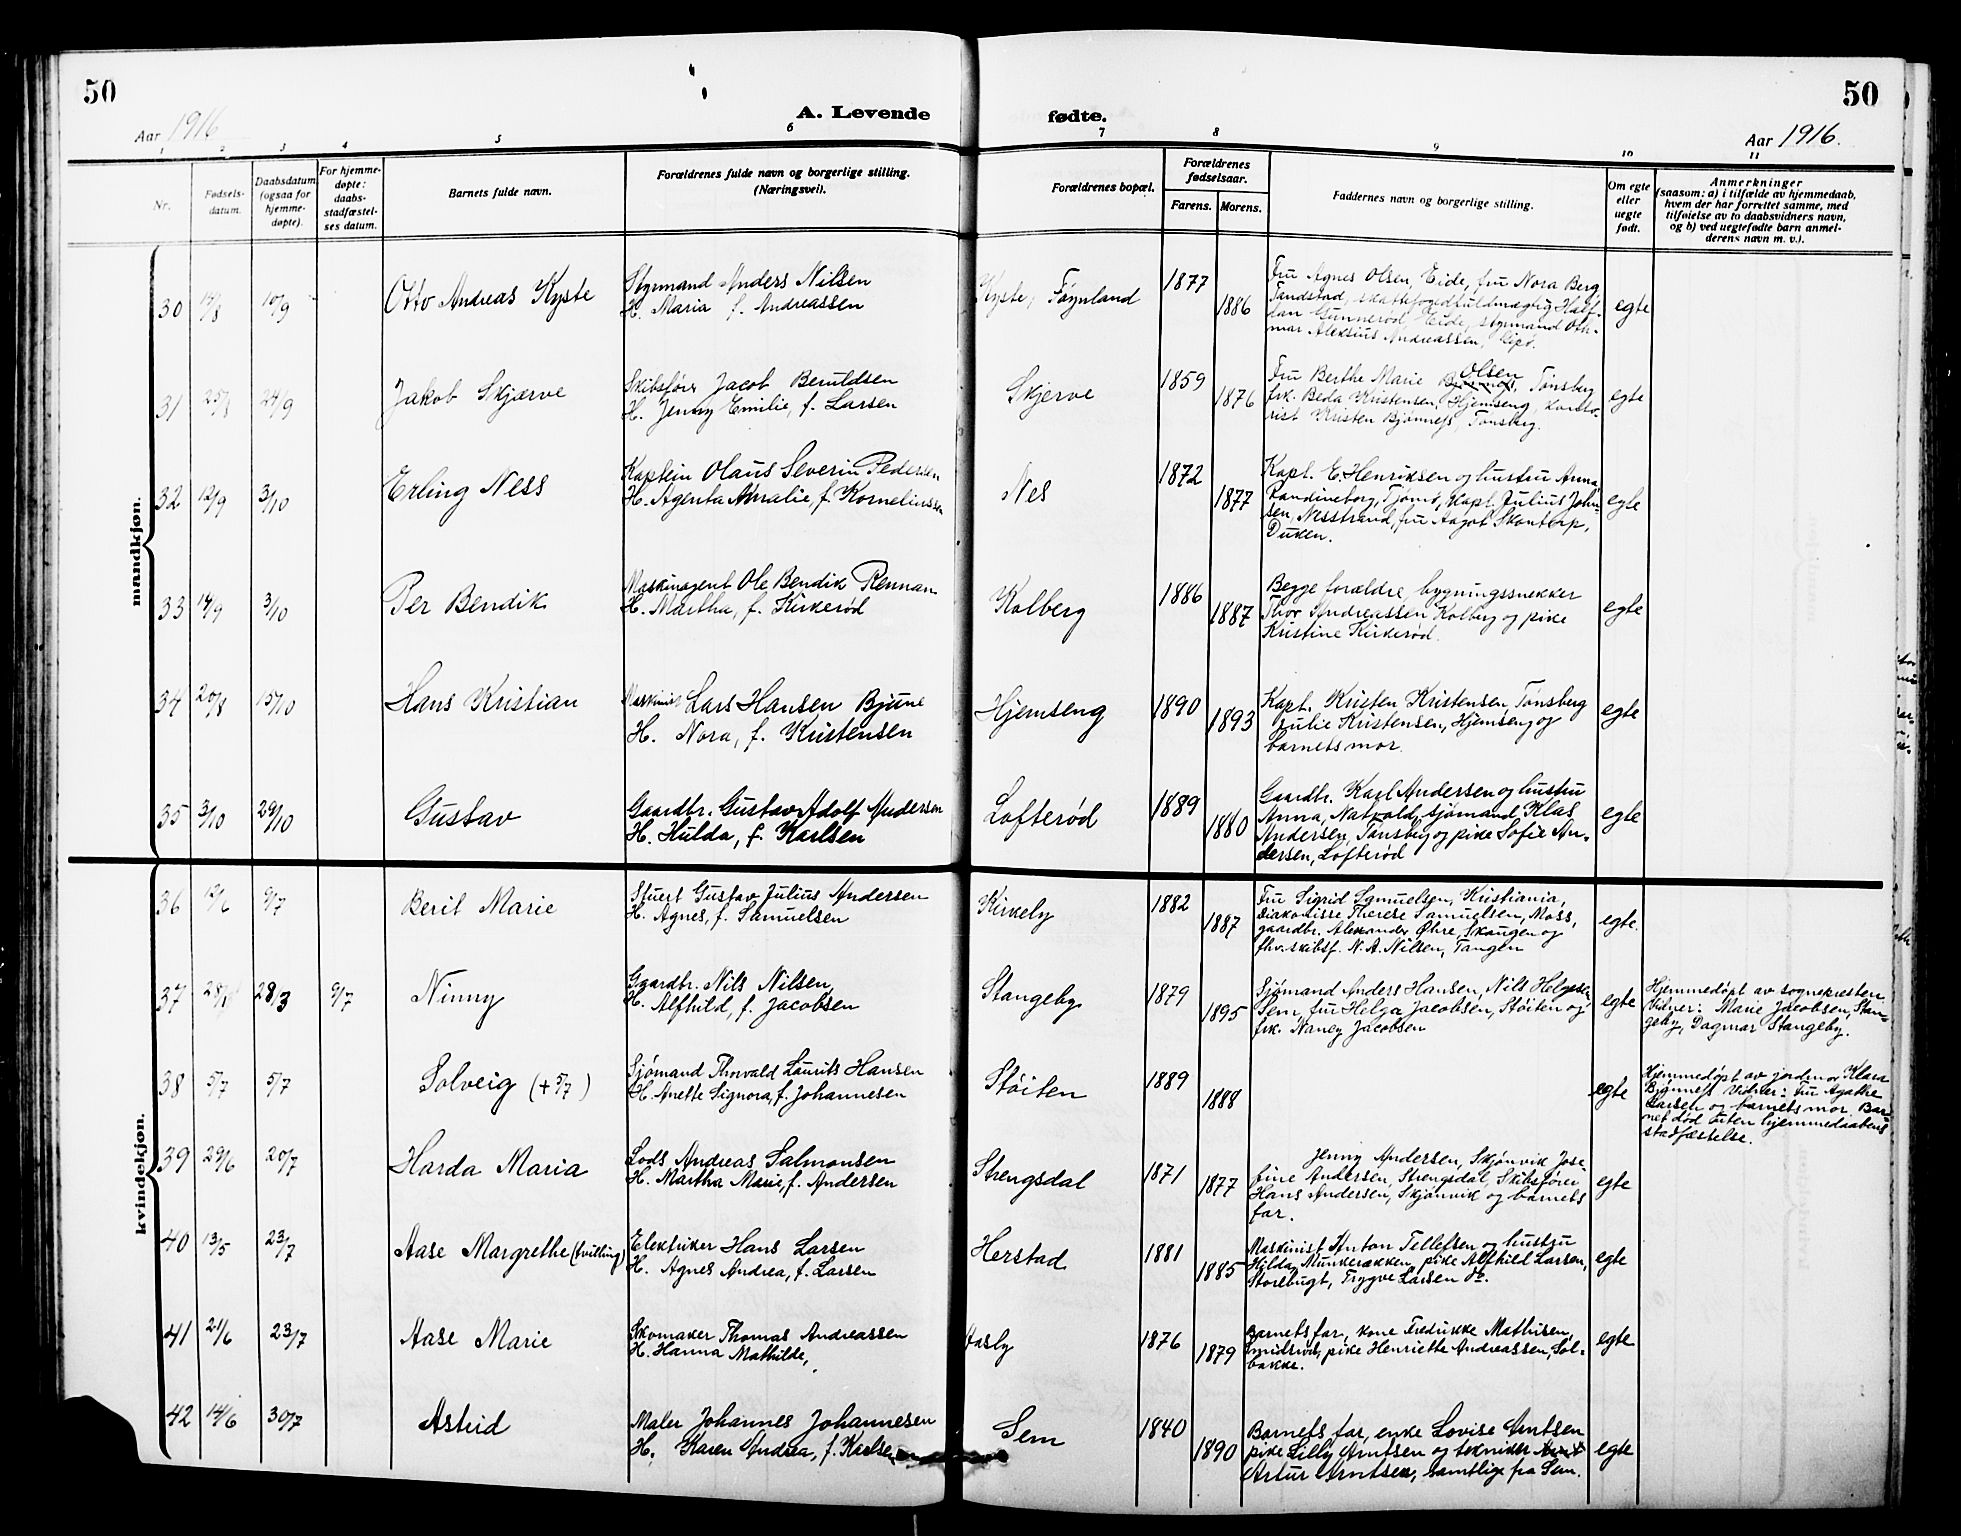 50
Aar 1916
A. Levende
1 2 3 4 5 6
Nr.
Fødsels-
datum.
Daabsdatum
(ogsaa for
hjemme-
døpte).
For hjemme-
døpte:
daabs-
stadfæstel-
ses datum.
Barnets fulde navn.
Forældrenes fulde navn og borgerlige stilling.
(Næringsvei).
fødte.
50
Aar 1916.
7 8 9 10 11
Forældrenes bopæl.
Forældrenes
fødselsaar.
Farens. Morens.
Faddernes navn og borgerlige stilling.
Om egte
eller
uegte
født.
Anmerkninger
(saasom: a) i tilfælde av hjemmedaab,
hvem der har forrettet samme, med
tilføielse av to daabsvidners navn,
og b) ved uegtefødte barn anmel-
derens navn m. v.).
mandkjøn.
30 14/8 10/9 Otto Andreas Kyste
Styrmand Anders Nilsen
H. Maria f. Andreassen
Kyste, Føynland 1877 1886
Fru Agnes Olsen, Eide, fru Nora Berg
Gunnerød, Eide, styrmand Oth-
mar Aleksius Andreassen,
egte
31 25/8 24/9 Jakob Skjærve
Skibsfører Jacob Beruldsen
H. Jenny Emilie, f. Larsen
Skjerve 1859 1876
Olsen
Fru Berthe Marie Tønsberg
frk. Beda Kristensen, Hjemseng, konto-
rist Kristen Bjønness, Tønsberg.
egte
32 12/9 3/10 Erling Ness
Kaptein Olaus Severin Pedersen
H. Agenta Amalie, f. Kornelinssen
Nes 1872 1877
Kapt. E. Henriksen og hustru Anna,
Randineborg, Tjømø, Kapt. Julius John-
sen, Nesstrand, fru Aagot Skontorp,
Duken.
egte
33 14/9 3/10 Per Bendik
Maskinagent Ole Bendik Rennan
H. Martha, f. Kirkerød
Kolberg 1886 1887
Begge forældre, bygningssnekker
Thor Andreassen Kolberg og pike
Kristine Kirkerød.
egte
34 20/8 15/10 Hans Kristian
Maskinist Lars Hansen Bjune
H. Nora, f. Kristensen
Hjemseng 1890 1893
Kapt. Kristen Kristensen, Tønsberg
Julie Kristensen, Hjemseng og
barnets mor.
egte
35 3/10 29/10 Gustav
Gaardbr. Gustav Adolf Andersen
H. Hulda, f. Karlsen
Lofterød 1889 1880
Gaardbr. Karl Andersen og hustru
Anna, Natvold, sjømand Klas
Andersen, Tønsberg og pike Sofie An-
dersen, Lofterød
egte
kvindekjøn.
36 12/6 9/7 Berit Marie
Stuert Gustav Julius Andersen
H. Agnes, f. Samuelsen
Kirkeby 1882 1887
Fru Sigrid Samuelsen, Kristiania,
Diakonisse Therese Samuelsen, Moss,
gaardbr. Alexander Øhre, Skaugen og
fhv. skibsf. N. A. Nilsen, Tangen
egte.
37 28/3 9/7 Ninny
Gaardbr. Nils Nilsen,
H. Alfhild, f. Jacobsen
Stangeby 1879 1895
Sjømand Anders Hansen, Nils Helgesen,
Sem, fru Helga Jacobsen, Støiten og
frk. Nancy Jacobsen
egte
Hjemmedøpt av sognepresten.
Vidner: Marie Jacobsen, Stan-
geby, Dagmar Stangeby.
38 5/7 5/7 Solveig (+ 5/7)
Sjømand Thorvald Laurits Hansen
H. Anette Signora, f. Johannesen
Støiten 1889 1888
egte
Hjemmedøpt av jordmor Klara
Bjønness Vidner: Fru Agathe
Larsen og barnets mor. Bar-
net død uten hjemmedaabens
stadfæstelse.
39 29/6 20/7 Harda Maria
Lods Andreas Salmonsen
H. Martha Marie, f. Andersen
Strengsdal 1871 1877
Jenny Andersen, Skjønvik Jose-
fine Andersen, Strengsdal, Skibsfører
Hans Andersen, Skjønvik og barnets
far.
egte
40 13/5 23/7 Aase Margrethe (tvilling)
Elektriker Hans Larsen
H. Agnes Andrea, f. Larsen
Herstad 1881 1885
Maskinist Anton Tellefsen og hustru
Hilda, Munkerækken, pike Alfhild Larsen,
Storebugt, Trygve Larsen do.
egte
41 21/6 23/7 Aase Marie
Skomaker Thomas Andreassen
H. Hanna Mathilde,
Aasly 1876 1879
Barnets far, kone Fredrikke Mathisen,
Smidsrød, pike Henriette Andreassen, Sol-
bakke.
egte
42 14/6 30/7 Astrid
Maler Johannes Johannesen
H. Karen Andrea, f. Karlsen
Sem 1840 1890
Barnets far, enke Lovise Arntsen
pike Lilly Arntsen og tekniker
Artur Arntsen, samtlige fra Sem.
egte